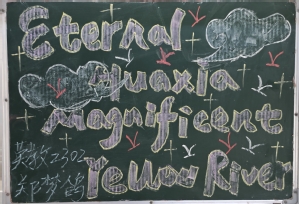 Eternal
Huaxia
magnificent
英教2302
Yellow River
郑梦鸽